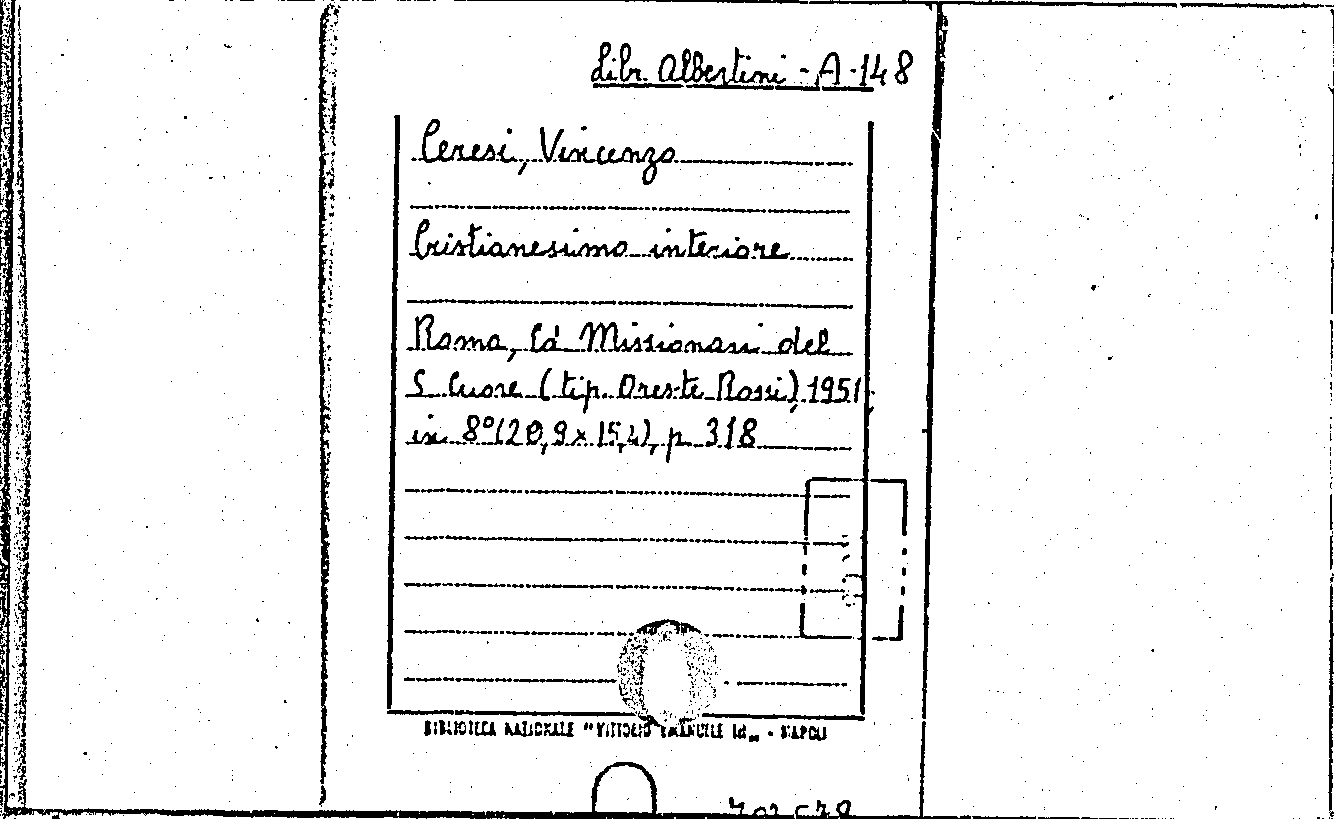 Libr. Albertini - A-148
Ceresi, Vincenzo
Cristianesimo interiore
Roma, Ed. Missionari del
S. Cuore (tip. Oreste Rossi), 1951,
in 8° (20,9 x 15,4), p. 318
BIBLIOTECA NAZIONALE "VITTORIO EMANUELE III" - NAPOLI